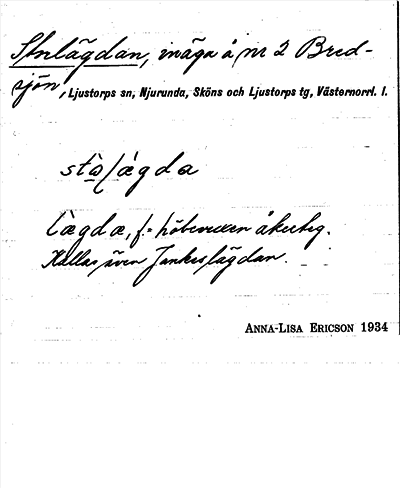 Stnlägdan, inäga å nr 2 Bred-
sjön, Ljustorps sn, Njurunda, Sköns och Ljustorps tg, Västernorrl. l.
lægda, f. = höbevuxen åkerteg.
Kallas även Jankeslägdan.
ANNA-LISA ERICSON 1934